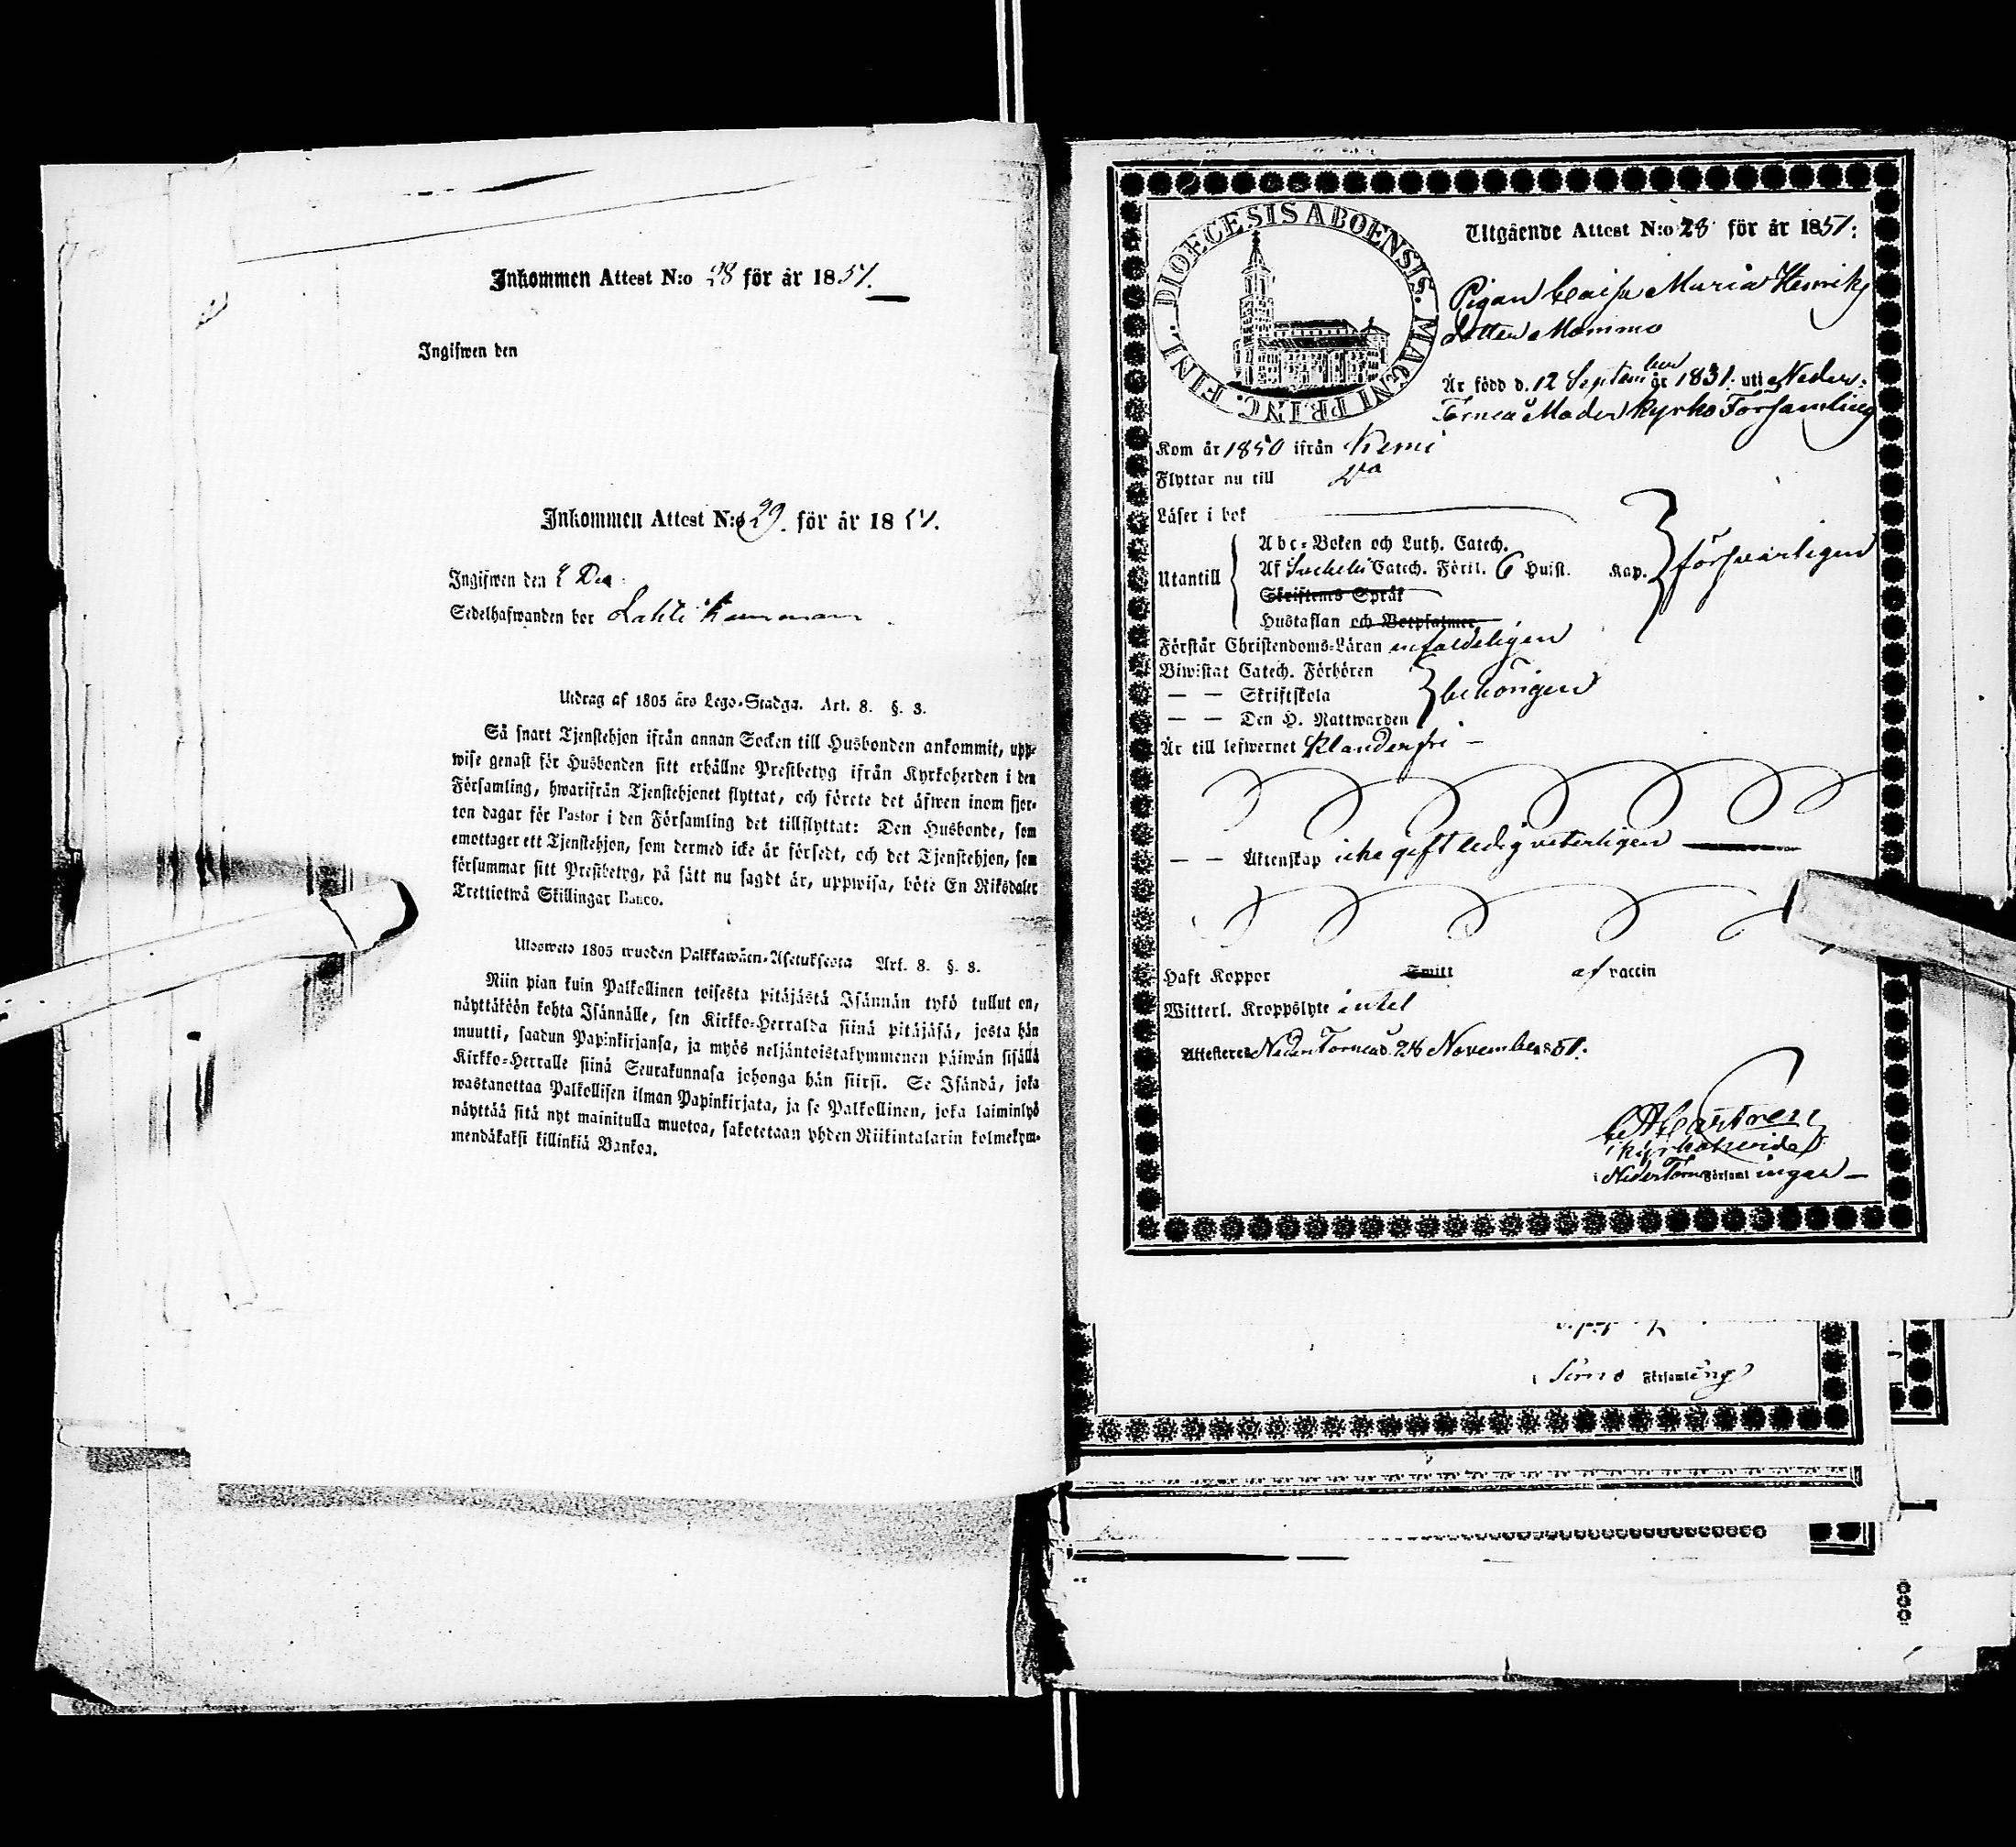 Inkommen Attest N:o 28 för år 1851.
Ingifwen den
Inkommen Attest N:o 29. för år 1851.
Ingifwen den 2 Dec:
Sedelhafwanden bor Lahti
Utdrag af 1805 års Lego-Stadga. Art. 8. §. 3.
Så snart Tjenstehjon ifrån annan Socken till Husbonden ankommit, upp-
wise genast för Husbonden sitt erhållne Prestbetyg ifrån Kyrkoherden i den
Församling, hwarifrån Tjenstehjonet flyttat, och förete det äfwen inom fjor-
ton dagar för Pastor i den Församling det tillflyttat: Den Husbonde, som
emottager ett Tjenstehjon, som dermed icke är försedt, och det Tjenstehjon, som
försummar sitt Prestbetyg, på sätt nu sagdt är, uppwisa, böte En Riksdaler
Trettietwå Skillingar Banco.
Ulosweto 1805 wuoden Palkkawäen-Asetuksesta Art. 8. §. 3.
Niin pian kuin Palkollinen toisesta pitäjästä Isännän tykö tullut on,
näyttäköön kohta Isännälle, sen Kirkko-Herralda siinä pitäjäsä, josta hän
muutti, saadun Papinkirjansa, ja myös neljäntoistakymmenen päiwän sisällä
Kirkko-Herralle siinä Seurakunnasa johonga hän siirsi. Se Isändä, joka
wastanottaa Palkollisen ilman Papinkirjata, ja se Palkollinen, joka laiminlyö
näyttää sitä nyt mainitulla muotoa, sakotetaan yhden Riikintalarin kolmekym-
mendäkaksi killinkiä Bankoa.
DIOECESIS ABOENSIS. MAGNI PRINC. FINL.
Utgående Attest N:o 28 för år 1851:
Pigan Caisa Maria Henriks
dotter Mommo
Är född d. 12 September år 1831. uti Neder:
Torneå Moder kyrko Församling
Kom år 1850 ifrån Kemi
Flyttar nu till Do
Läser i bok
Utantill
Abc-Boken och Luth. Catech.
Af Svebelii Catech. Förkl. 6 Hufst. Kap. försvarligen
Skriftens Språk
Hustaflan och Botpsalmer
Förstår Christendoms-Läran enfaldeligen
Biwistat Catech. Förhören
— — Skriftskola behörigen
— — Den H. Nattwarden
Är till lefwernet Klanderfri —
— — Äktenskap icke gift ledig veterligen
Haft Koppor Smitt af vaccin
Witterl. Kroppslyte intet
Attesteres Neder Torneå d. 28 November 1851.
Castren
Kyrkoherde
i Neder Torneå Församlingar —
i Simo Församling